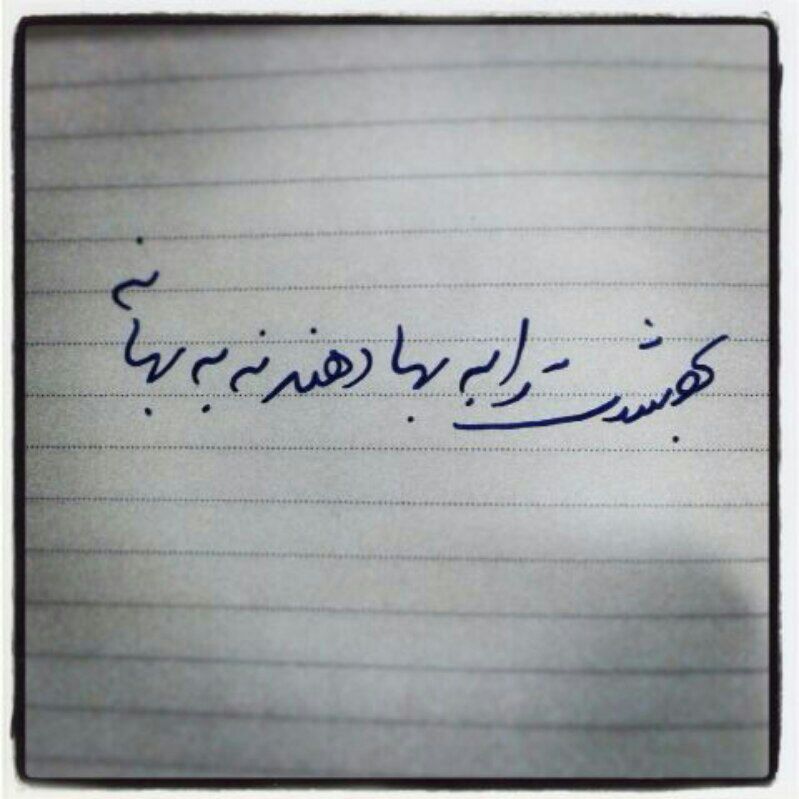 بهشت را به بها دهند نه به بهانه